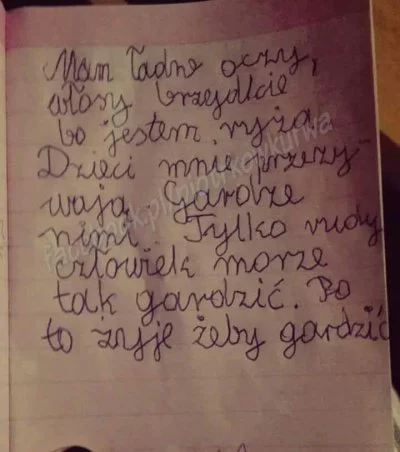 Mam ładne oczy,
włosy brzydkie
bo jestem ryża.
Dzieci mnie przezy-
wają. Gardze
nimi. Tylko rudy
człowiek morze
tak gardzić. Bo
to żyje żeby gardzić